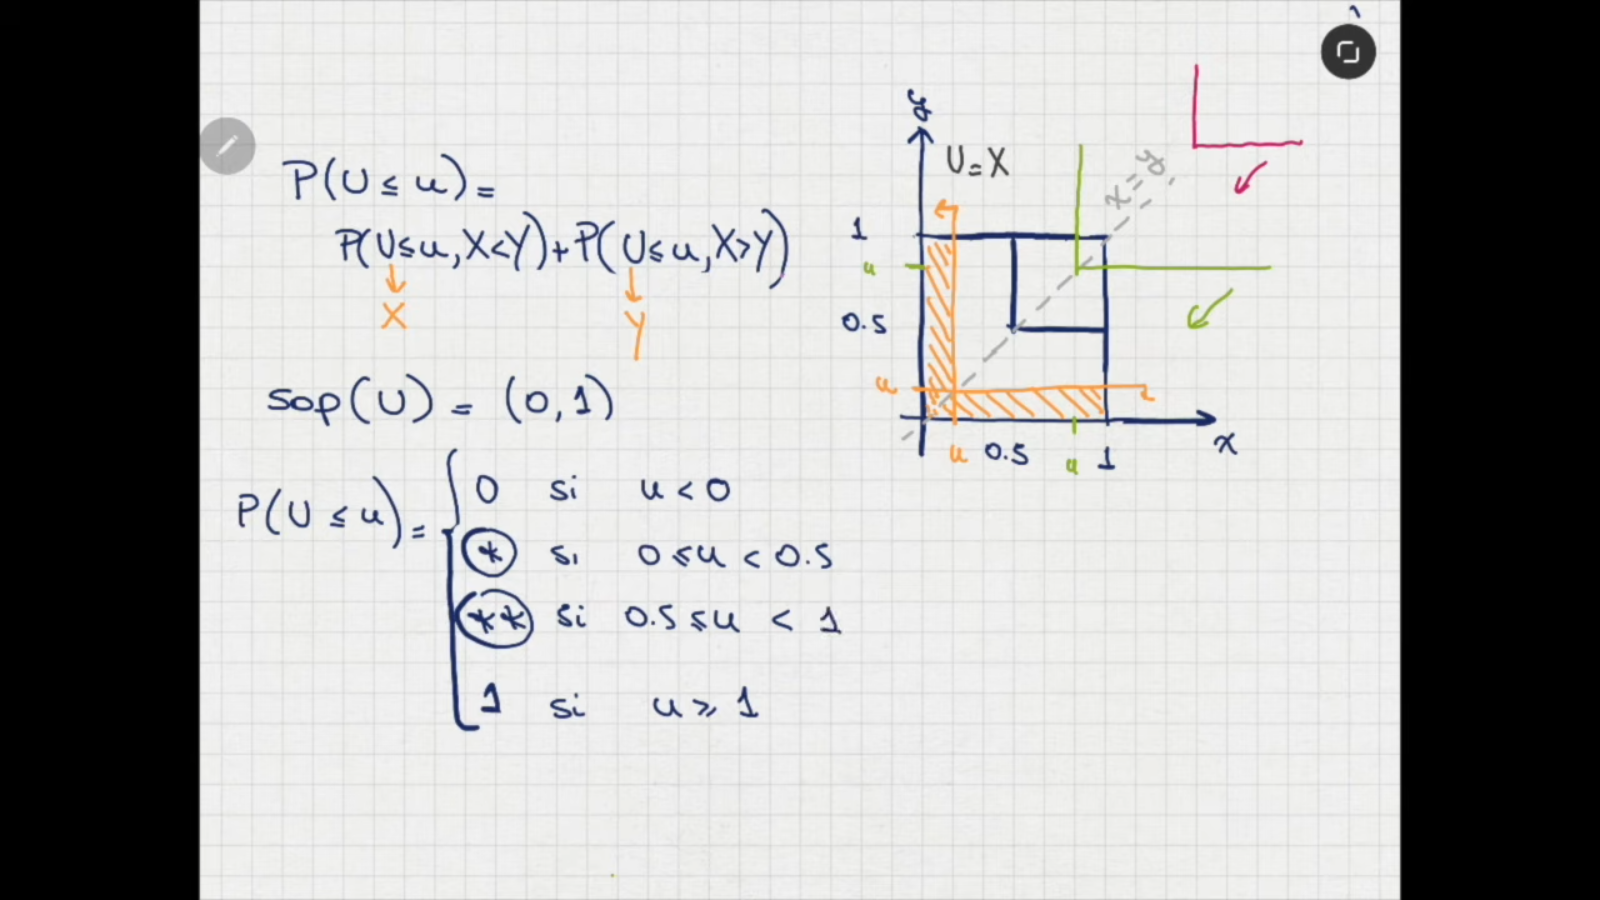 P(U ≤ u) =
P(U ≤ u, X < Y) + P(U ≤ u, X > Y)
X
Y
sop(U) = (0, 1)
P(U ≤ u) =
0 si u < 0
* si 0 ≤ u < 0.5
** si 0.5 ≤ u < 1
1 si u ≥ 1
y
U = X
X = y
1
u
0.5
u
u
0.5
u
1
x